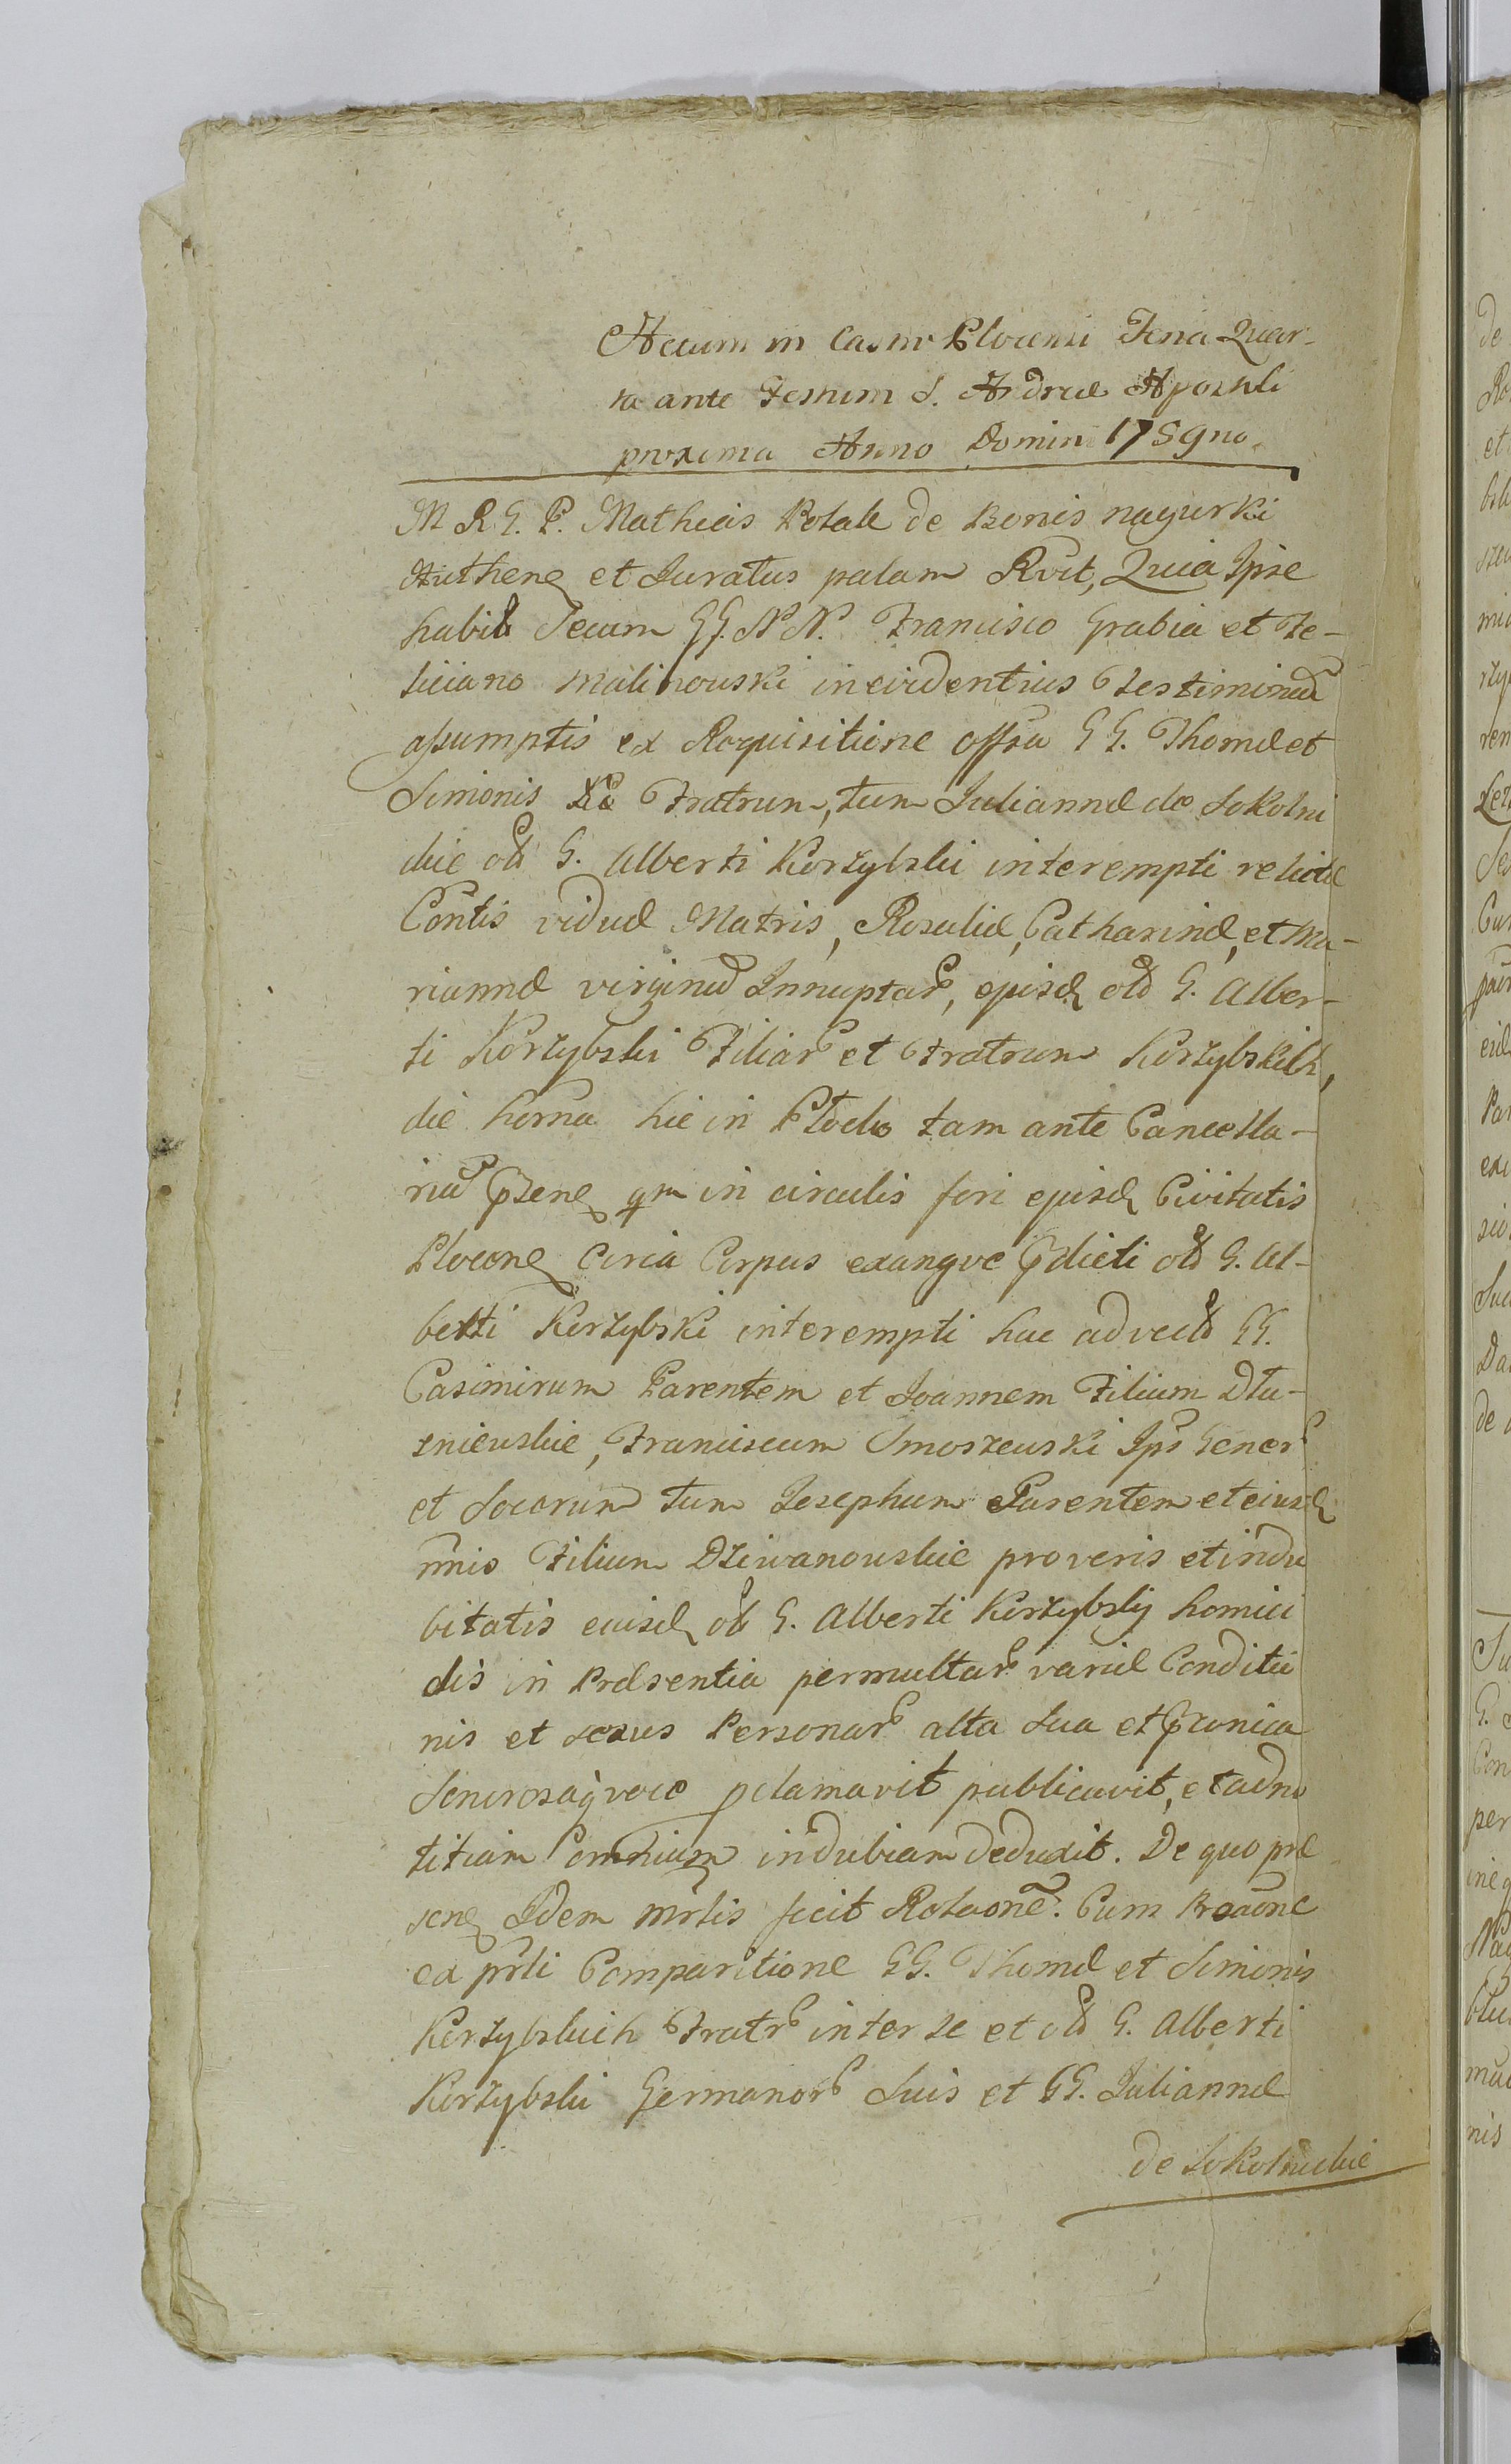 Actum in Castro Plocensi Feria Quar-
ta ante Festum S. Andreæ Apostoli
proxima Anno Domini 1759no.
M R G. P. Mathias Kotak de Bonis nagurki
Authenq et Juratus palam Rvit, Quia Ipse
habit Secum GG. N N. Francisco Grabia et Fe-
liciano Malinouski in evidentius Testimoniũ
assumptis ex Requisitione offsa GG. Thomæ et
Simonis Fratrum, tum Juliannæ de Sokolni
ckie oð G. Alberti Korzybski interempti relictæ
Contis viduæ Matris, Rosaliæ, Catharinæ, et Ma-
riannæ virginũ Innuptar, ejusdq oð G. Alber-
ti Korzybski Filiar et Fratrum Korzybskich,
die horna hic in Płocko tam ante Cancella-
riã Pzenq qm in circulis fori ejusdq Civitatis
Plocenq Circa Corpus exangve Pdicti oð G. Al-
berti Korzybski interempti huc advectð GG.
Casimirum Parentem et Joannem Filium Dłu-
znieuskie, Franciscum Smoszeuski Ips Gener
et Socorum tum Josephum Parentem et eiusdq
nnis Filium Dziwanouskie pro veris et indu
bitatis eiusdq oð G. Alberti Korzybskij homici
dis in Præsentia permultar variæ Conditio
nis et sexus Personar alta sua et Pconica
Sonorosaq voce pclamavit publicavit, et ad no
titiam omnium indubiam deduxit. De quo præ
senq Idem mrlis fecit Rolaone. Cum Proaone
ex prli Comparitione GG. Thomæ et Simonis
Korzybskich Fratr inter se et oð G. Alberti
Korzybski Germanor suis et GG. Juliannæ
de Sokolnickie